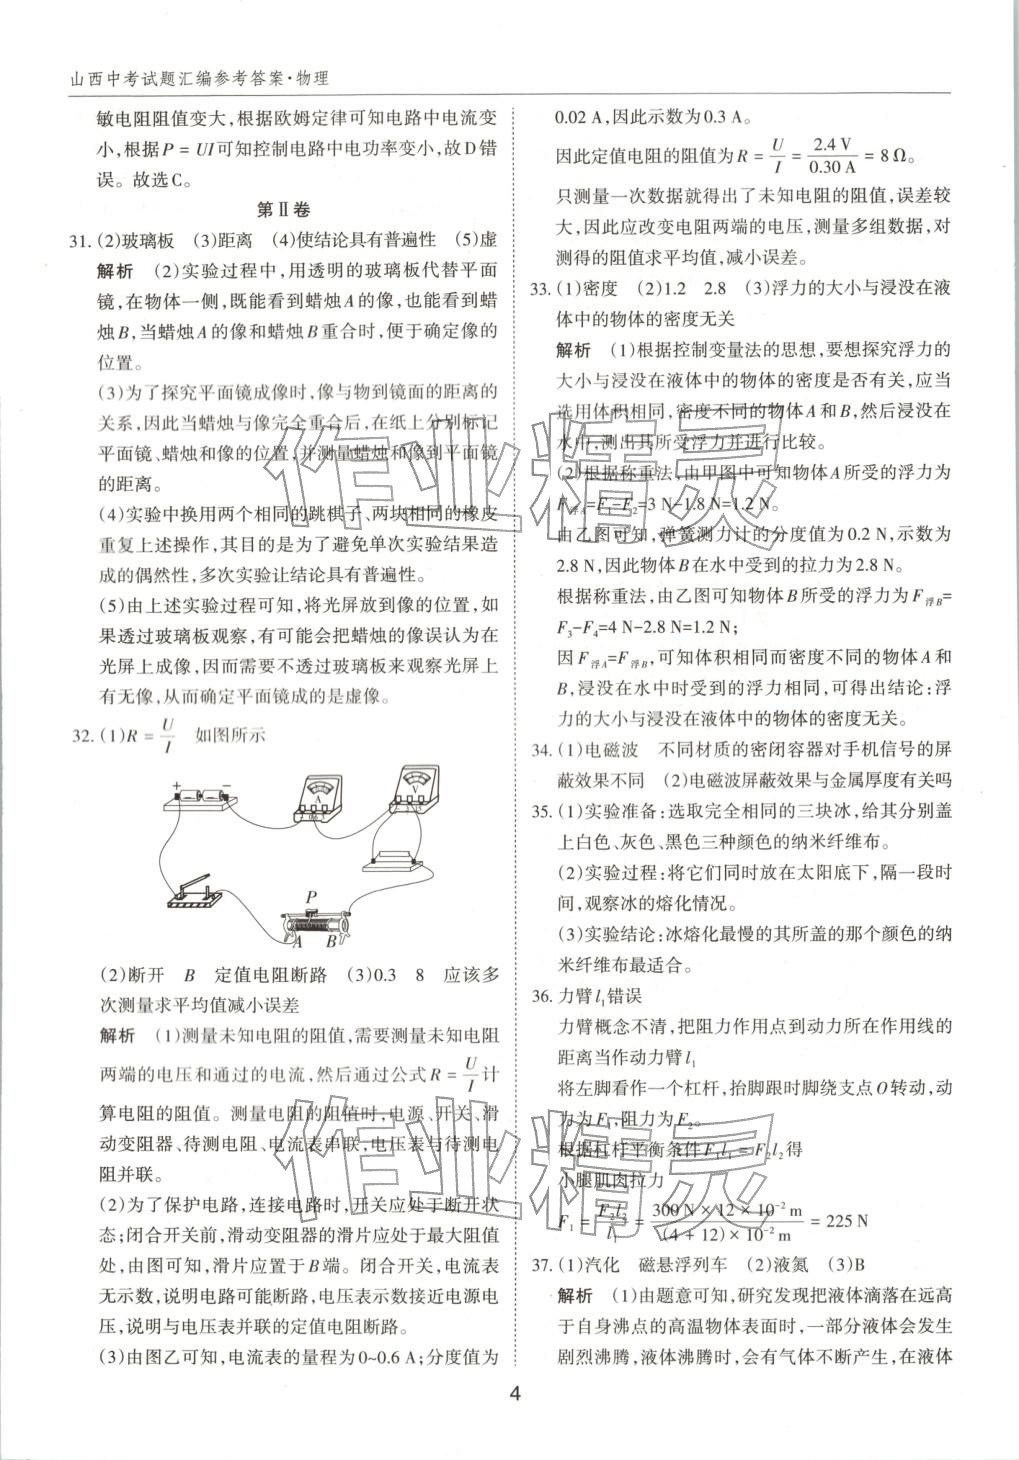 山西中考试题汇编参考答案·物理
敏电阻阻值变大,根据欧姆定律可知电路中电流变
小,根据P = UI可知控制电路中电功率变小,故D错
误。故选C。
第Ⅱ卷
31. (2)玻璃板 (3)距离 (4)使结论具有普遍性 (5)虚
解析 (2)实验过程中,用透明的玻璃板代替平面
镜,在物体一侧,既能看到蜡烛A的像,也能看到蜡
烛B,当蜡烛A的像和蜡烛B重合时,便于确定像的
位置。
(3)为了探究平面镜成像时,像与物到镜面的距离的
关系,因此当蜡烛与像完全重合后,在纸上分别标记
平面镜、蜡烛和像的位置,并测量蜡烛和像到平面镜
的距离。
(4)实验中换用两个相同的跳棋子、两块相同的橡皮
重复上述操作,其目的是为了避免单次实验结果造
成的偶然性,多次实验让结论具有普遍性。
(5)由上述实验过程可知,将光屏放到像的位置,如
果透过玻璃板观察,有可能会把蜡烛的像误认为在
光屏上成像,因而需要不透过玻璃板来观察光屏上
有无像,从而确定平面镜成的是虚像。
32. (1)R = U/I 如图所示
+ −
A
V
P
A B
(2)断开 B 定值电阻断路 (3)0.3 8 应该多
次测量求平均值减小误差
解析 (1)测量未知电阻的阻值,需要测量未知电阻
两端的电压和通过的电流,然后通过公式R = U/I 计
算电阻的阻值。测量电阻的阻值时,电源、开关、滑
动变阻器、待测电阻、电流表串联,电压表与待测电
阻并联。
(2)为了保护电路,连接电路时,开关应处于断开状
态;闭合开关前,滑动变阻器的滑片应处于最大阻值
处,由图可知,滑片应置于B端。闭合开关,电流表
无示数,说明电路可能断路,电压表示数接近电源电
压,说明与电压表并联的定值电阻断路。
(3)由图乙可知,电流表的量程为0~0.6 A;分度值为
0.02 A,因此示数为0.3 A。
因此定值电阻的阻值为R = U/I = 2.4 V/0.30 A = 8 Ω。
只测量一次数据就得出了未知电阻的阻值,误差较
大,因此应改变电阻两端的电压,测量多组数据,对
测得的阻值求平均值,减小误差。
33. (1)密度 (2)1.2 2.8 (3)浮力的大小与浸没在液
体中的物体的密度无关
解析 (1)根据控制变量法的思想,要想探究浮力的
大小与浸没在液体中的物体的密度是否有关,应当
选用体积相同,密度不同的物体A和B,然后浸没在
水中,测出其所受浮力并进行比较。
(2)根据称重法,由甲图中可知物体A所受的浮力为
F浮A=F₁−F₂=3 N−1.8 N=1.2 N。
由乙图可知,弹簧测力计的分度值为0.2 N,示数为
2.8 N,因此物体B在水中受到的拉力为2.8 N。
根据称重法,由乙图可知物体B所受的浮力为F浮B=
F₃−F₄=4 N−2.8 N=1.2 N;
因F浮A=F浮B,可知体积相同而密度不同的物体A和
B,浸没在水中时受到的浮力相同,可得出结论:浮
力的大小与浸没在液体中的物体的密度无关。
34. (1)电磁波 不同材质的密闭容器对手机信号的屏
蔽效果不同 (2)电磁波屏蔽效果与金属厚度有关吗
35. (1)实验准备:选取完全相同的三块冰,给其分别盖
上白色、灰色、黑色三种颜色的纳米纤维布。
(2)实验过程:将它们同时放在太阳底下,隔一段时
间,观察冰的熔化情况。
(3)实验结论:冰熔化最慢的其所盖的那个颜色的纳
米纤维布最适合。
36. 力臂l₁错误
力臂概念不清,把阻力作用点到动力所在作用线的
距离当作动力臂l₁
将左脚看作一个杠杆,抬脚跟时脚绕支点O转动,动
力为F₁,阻力为F₂。
根据杠杆平衡条件F₁l₁ = F₂l₂得
小腿肌肉拉力
F₁ = F₂l₂/l₁ = 300 N × 12 × 10⁻² m/(4 + 12)× 10⁻² m = 225 N
37. (1)汽化 磁悬浮列车 (2)液氮 (3)B
解析 (1)由题意可知,研究发现把液体滴落在远高
于自身沸点的高温物体表面时,一部分液体会发生
剧烈沸腾,液体沸腾时,会有气体不断产生,在液体
4
作业精灵
作业精灵